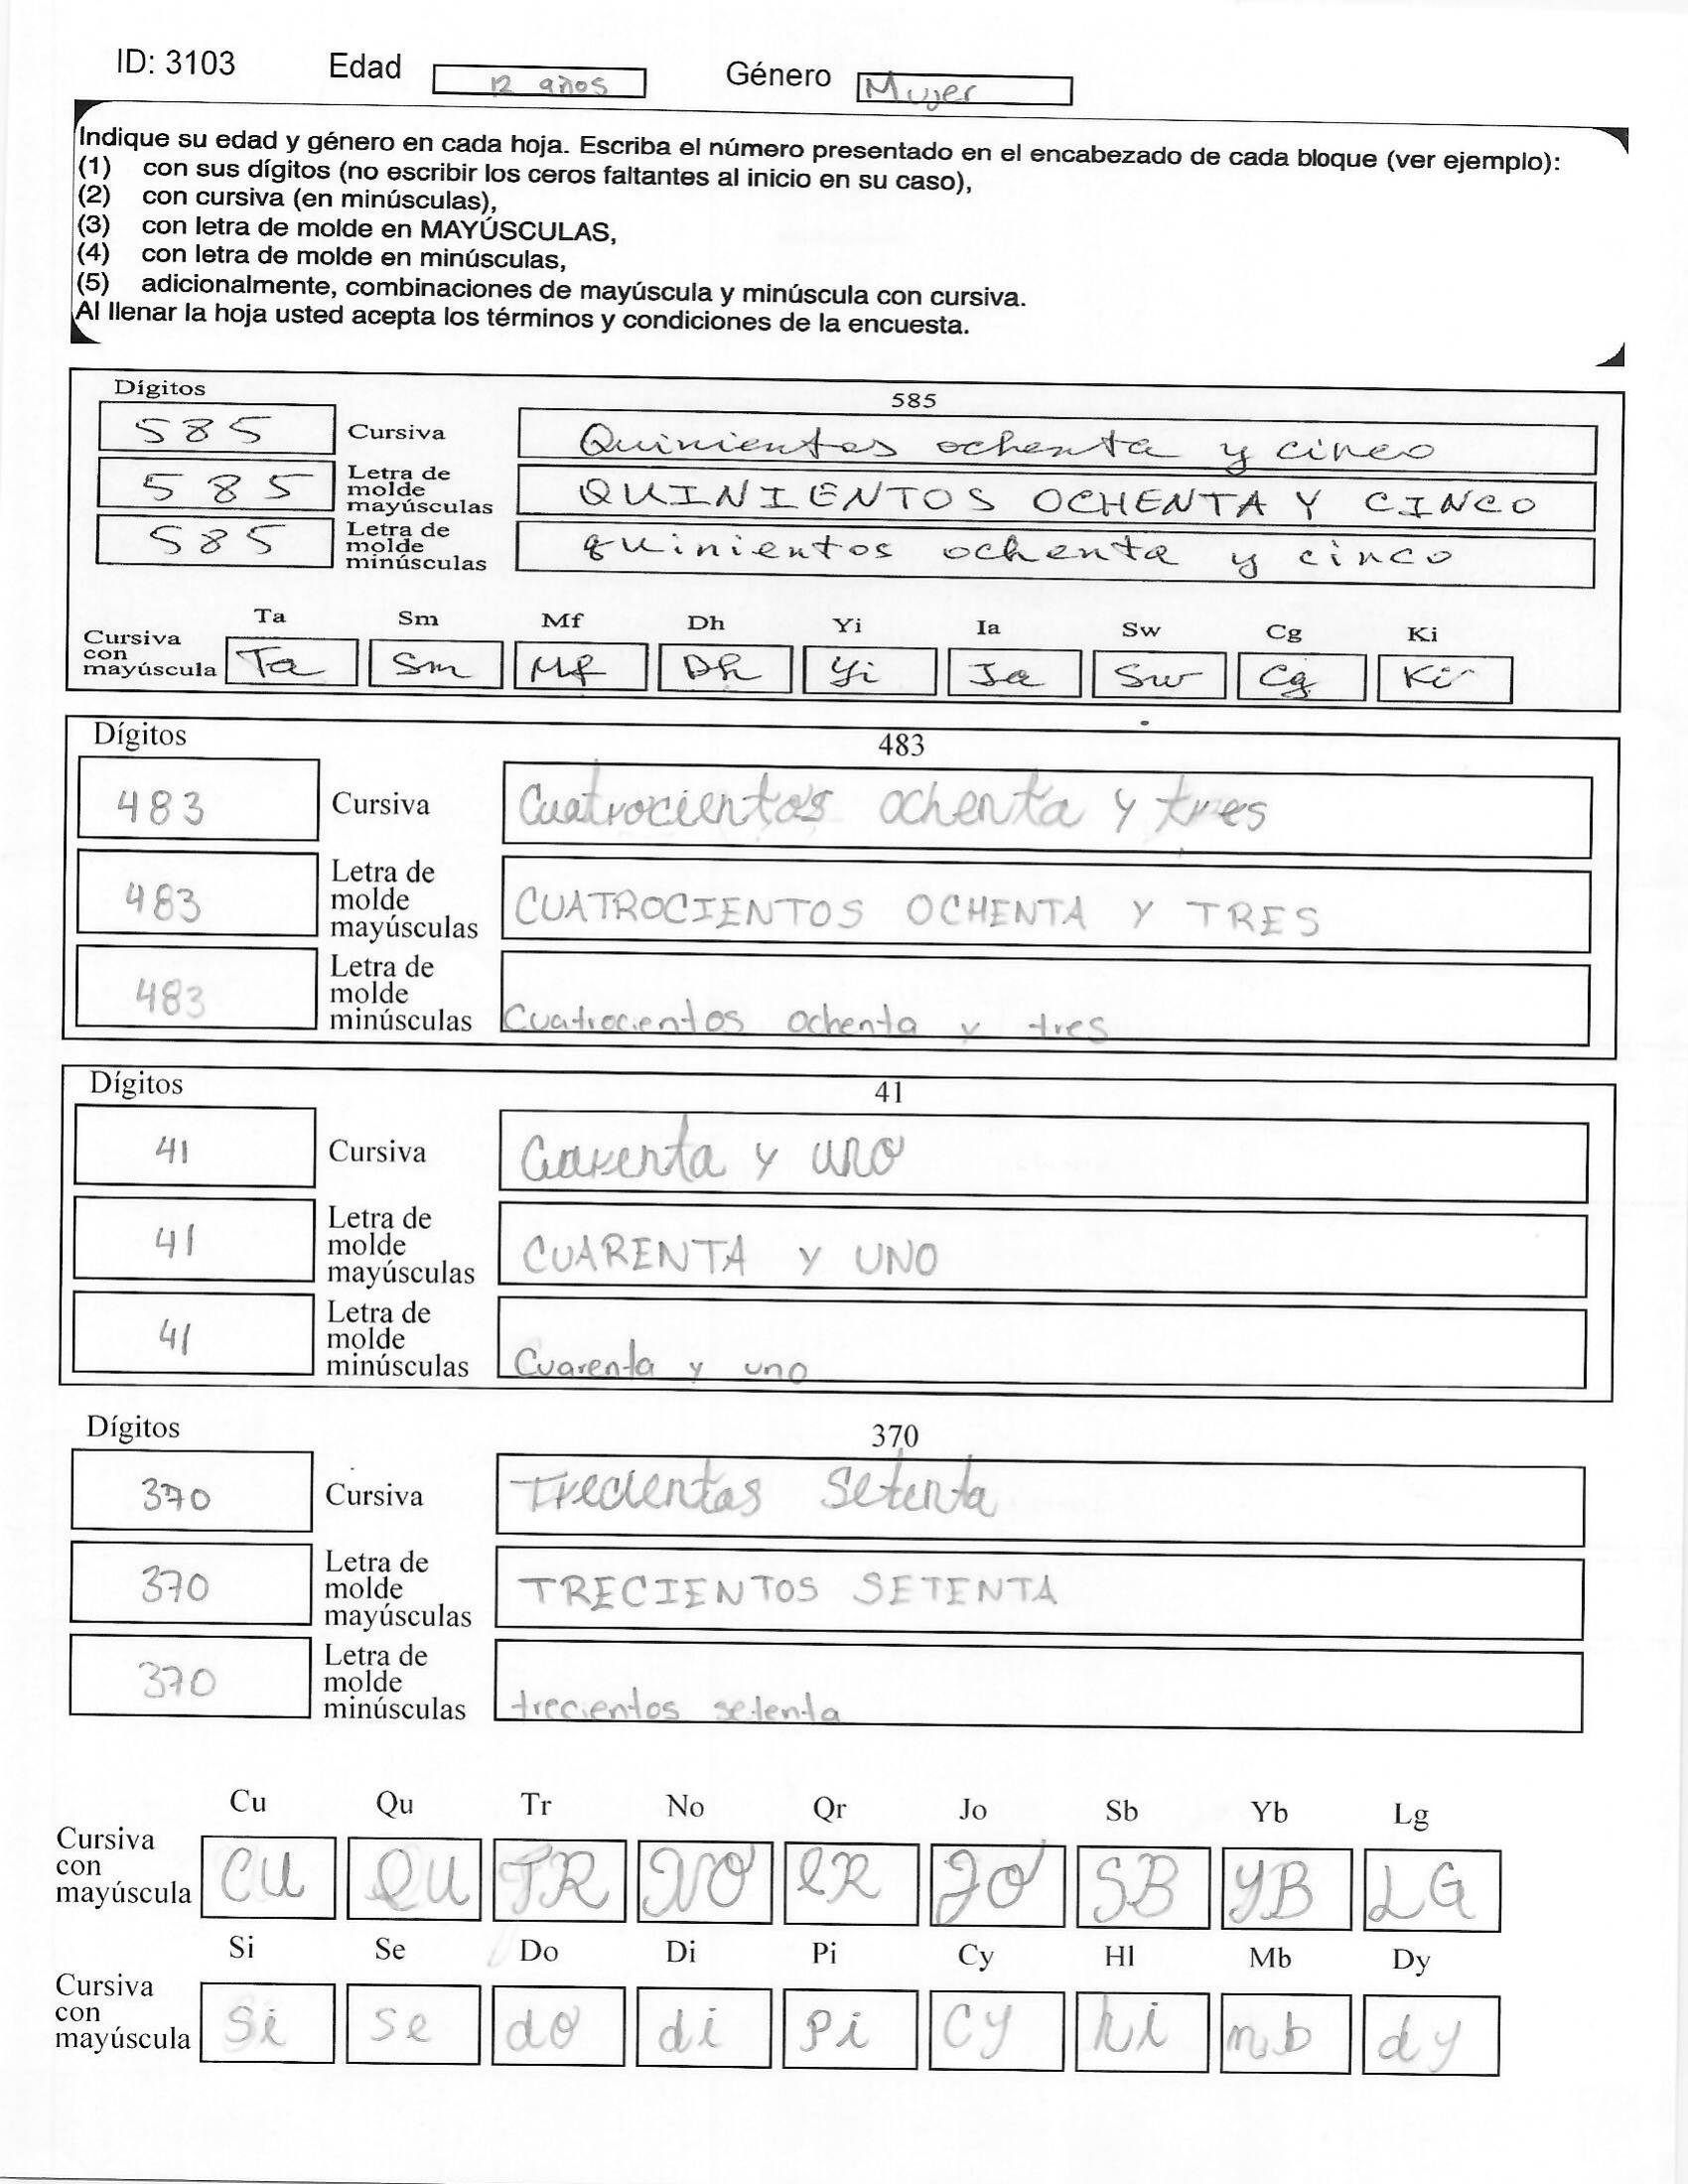 ID: 3103 Edad 12 años Género Mujer
Indique su edad y género en cada hoja. Escriba el número presentado en el encabezado de cada bloque (ver ejemplo):
(1) con sus dígitos (no escribir los ceros faltantes al inicio en su caso),
(2) con cursiva (en minúsculas),
(3) con letra de molde en MAYÚSCULAS,
(4) con letra de molde en minúsculas,
(5) adicionalmente, combinaciones de mayúscula y minúscula con cursiva.
Al llenar la hoja usted acepta los términos y condiciones de la encuesta.
Dígitos 585
585 Cursiva Quinientos ochenta y cinco
585 Letra de molde mayúsculas QUINIENTOS OCHENTA Y CINCO
585 Letra de molde minúsculas quinientos ochenta y cinco
Ta Sm Mf Dh Yi Ia Sw Cg Ki
Cursiva con mayúscula Ta Sm Mf Dh Yi Ia Sw Cg Ki
Dígitos 483
483 Cursiva Cuatrocientos ochenta y tres
483 Letra de molde mayúsculas CUATROCIENTOS OCHENTA Y TRES
483 Letra de molde minúsculas Cuatrocientos ochenta y tres
Dígitos 41
41 Cursiva Cuarenta y uno
41 Letra de molde mayúsculas CUARENTA Y UNO
41 Letra de molde minúsculas Cuarenta y uno
Dígitos 370
370 Cursiva Trecientos Setenta
370 Letra de molde mayúsculas TRECIENTOS SETENTA
370 Letra de molde minúsculas trecientos setenta
Cu Qu Tr No Qr Jo Sb Yb Lg
Cursiva con mayúscula CU QU TR NO QR JO SB YB LG
Si Se Do Di Pi Cy Hl Mb Dy
Cursiva con mayúscula Si Se do di Pi Cy hi mb dy